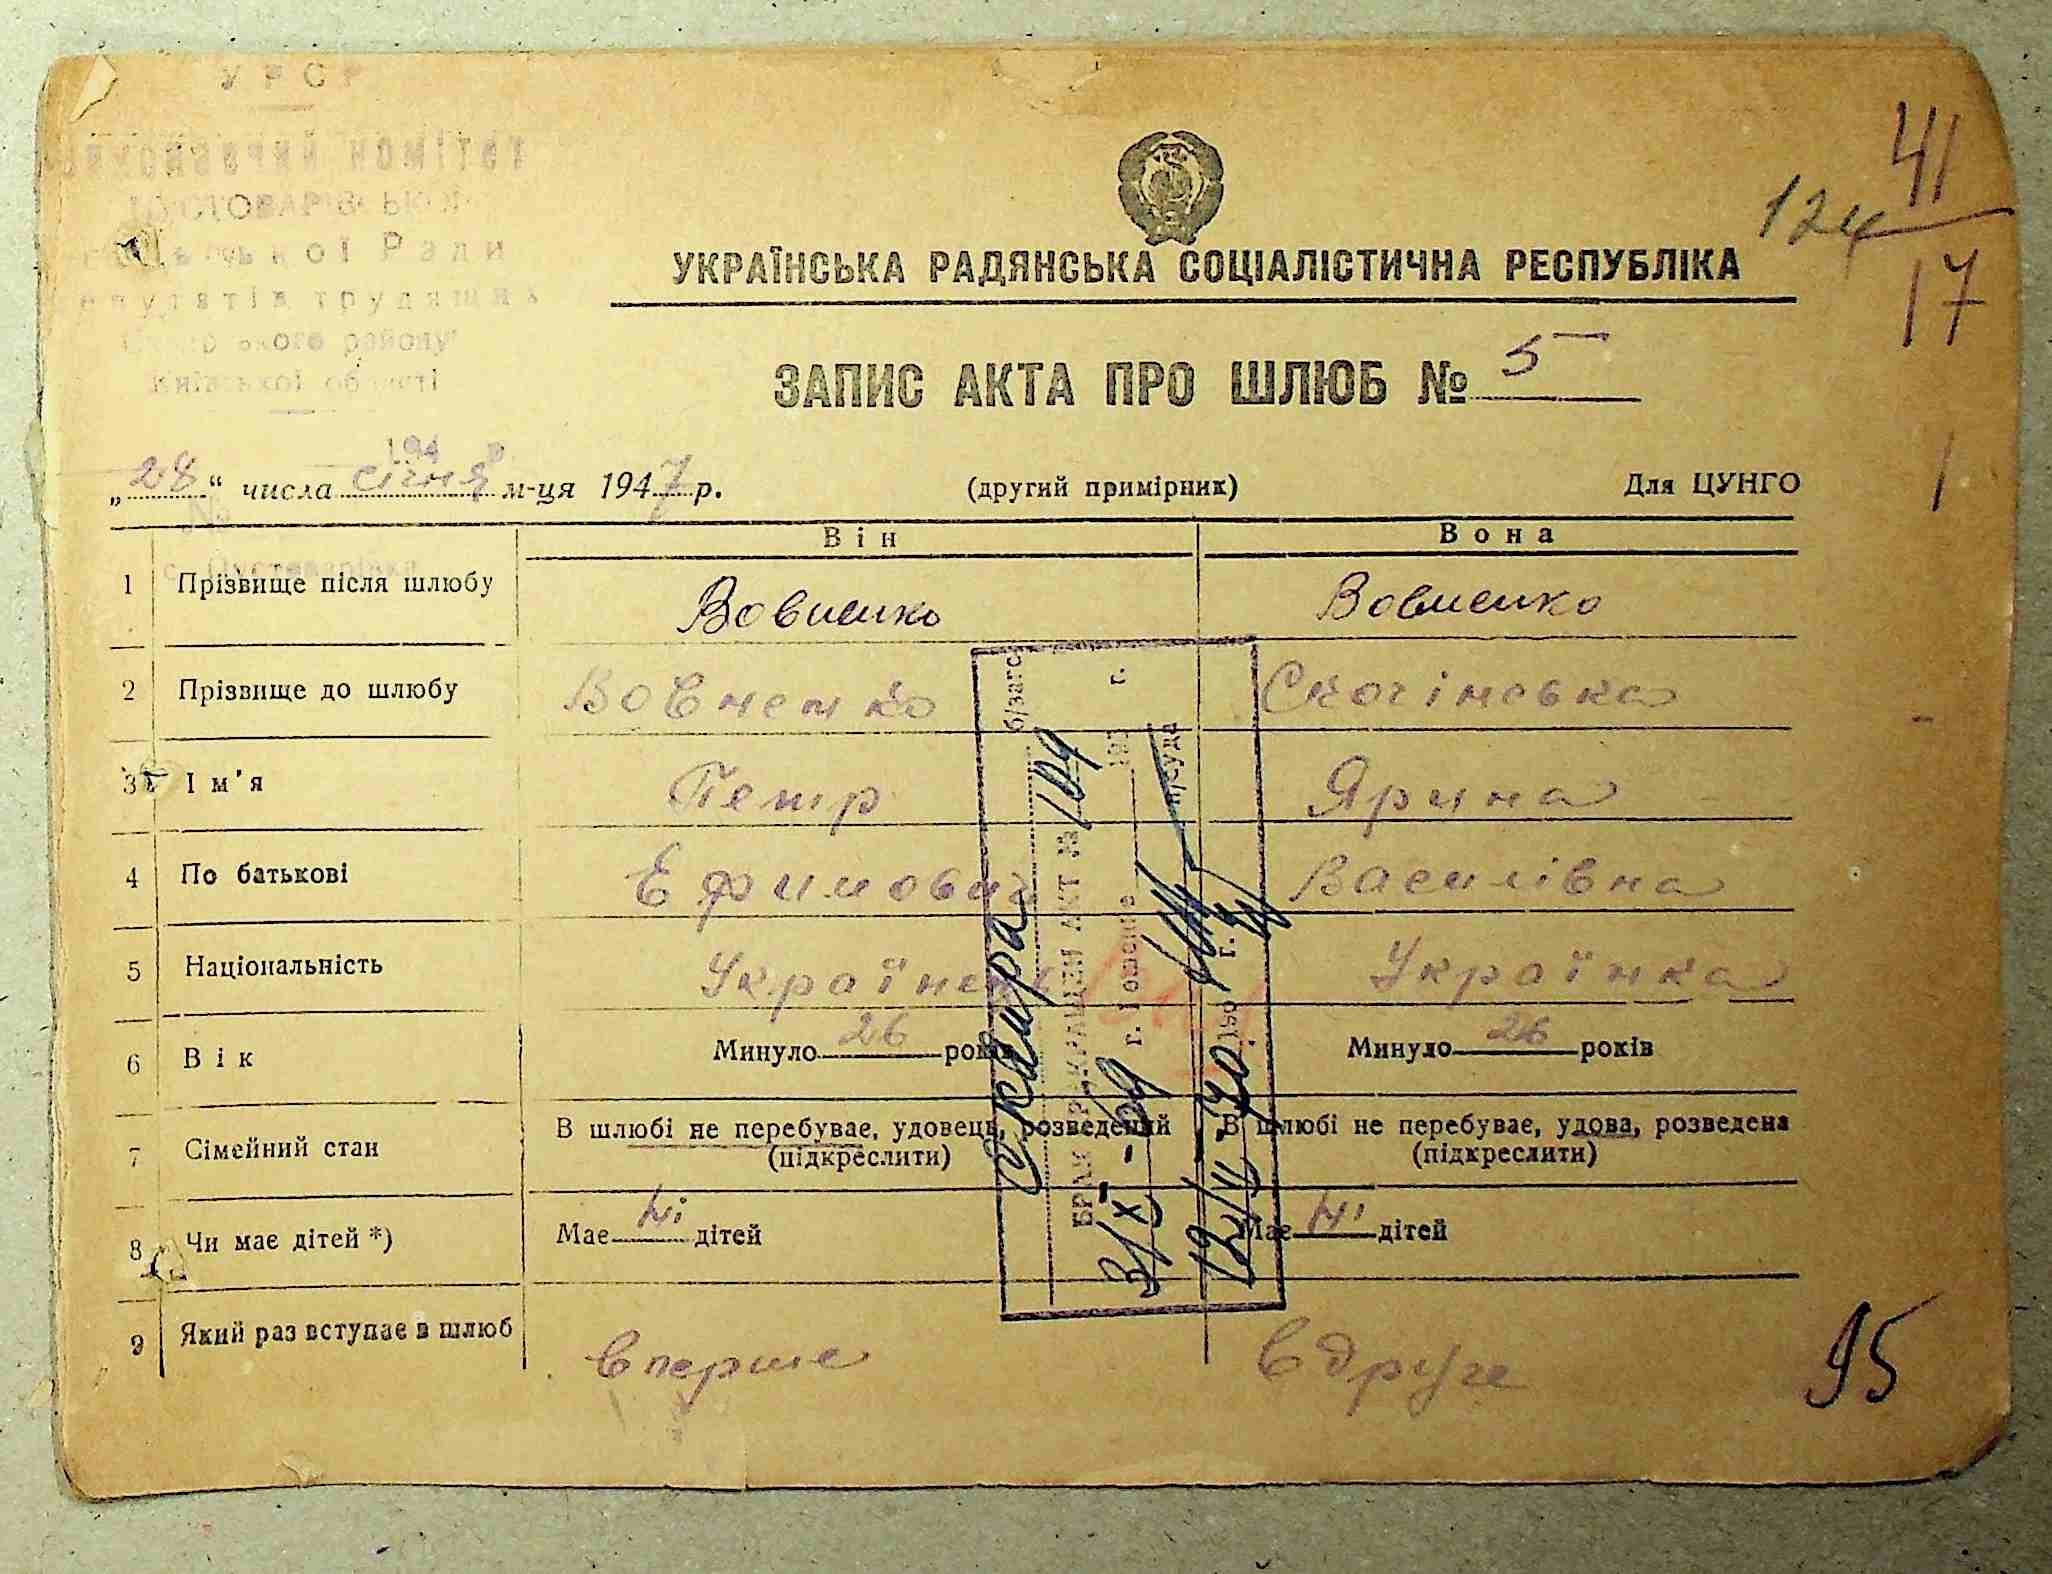 У Р С Р
ПУСТОВАРІВСЬКОЇ
Ради
депутатів трудящих
району
Київської області
194
с. Пустоварівка
41
124
17
1
УКРАЇНСЬКА РАДЯНСЬКА СОЦІАЛІСТИЧНА РЕСПУБЛІКА
ЗАПИС АКТА ПРО ШЛЮБ № 5
„28“ числа січня м-ця 1947 р. (другий примірник) Для ЦУНГО
Він Вона
1 Прізвище після шлюбу Вовненко Вовненко
2 Прізвище до шлюбу Вовненко Скочінська
3 Ім'я Петр Ярина
4 По батькові Ефимович Василівна
5 Національність Українец Українка
6 Вік Минуло 26 років Минуло 26 років
7 Сімейний стан В шлюбі не перебуває, удовець, розведений В шлюбі не перебуває, удова, розведена
(підкреслити) (підкреслити)
8 Чи має дітей *) Має ні дітей Має ні дітей
9 Який раз вступає в шлюб вперше вдруге
Сквира б/загс
БРАК ПРЕКРАЩЕН АКТ № 104
г. Решение 197 г.
н/суда
95